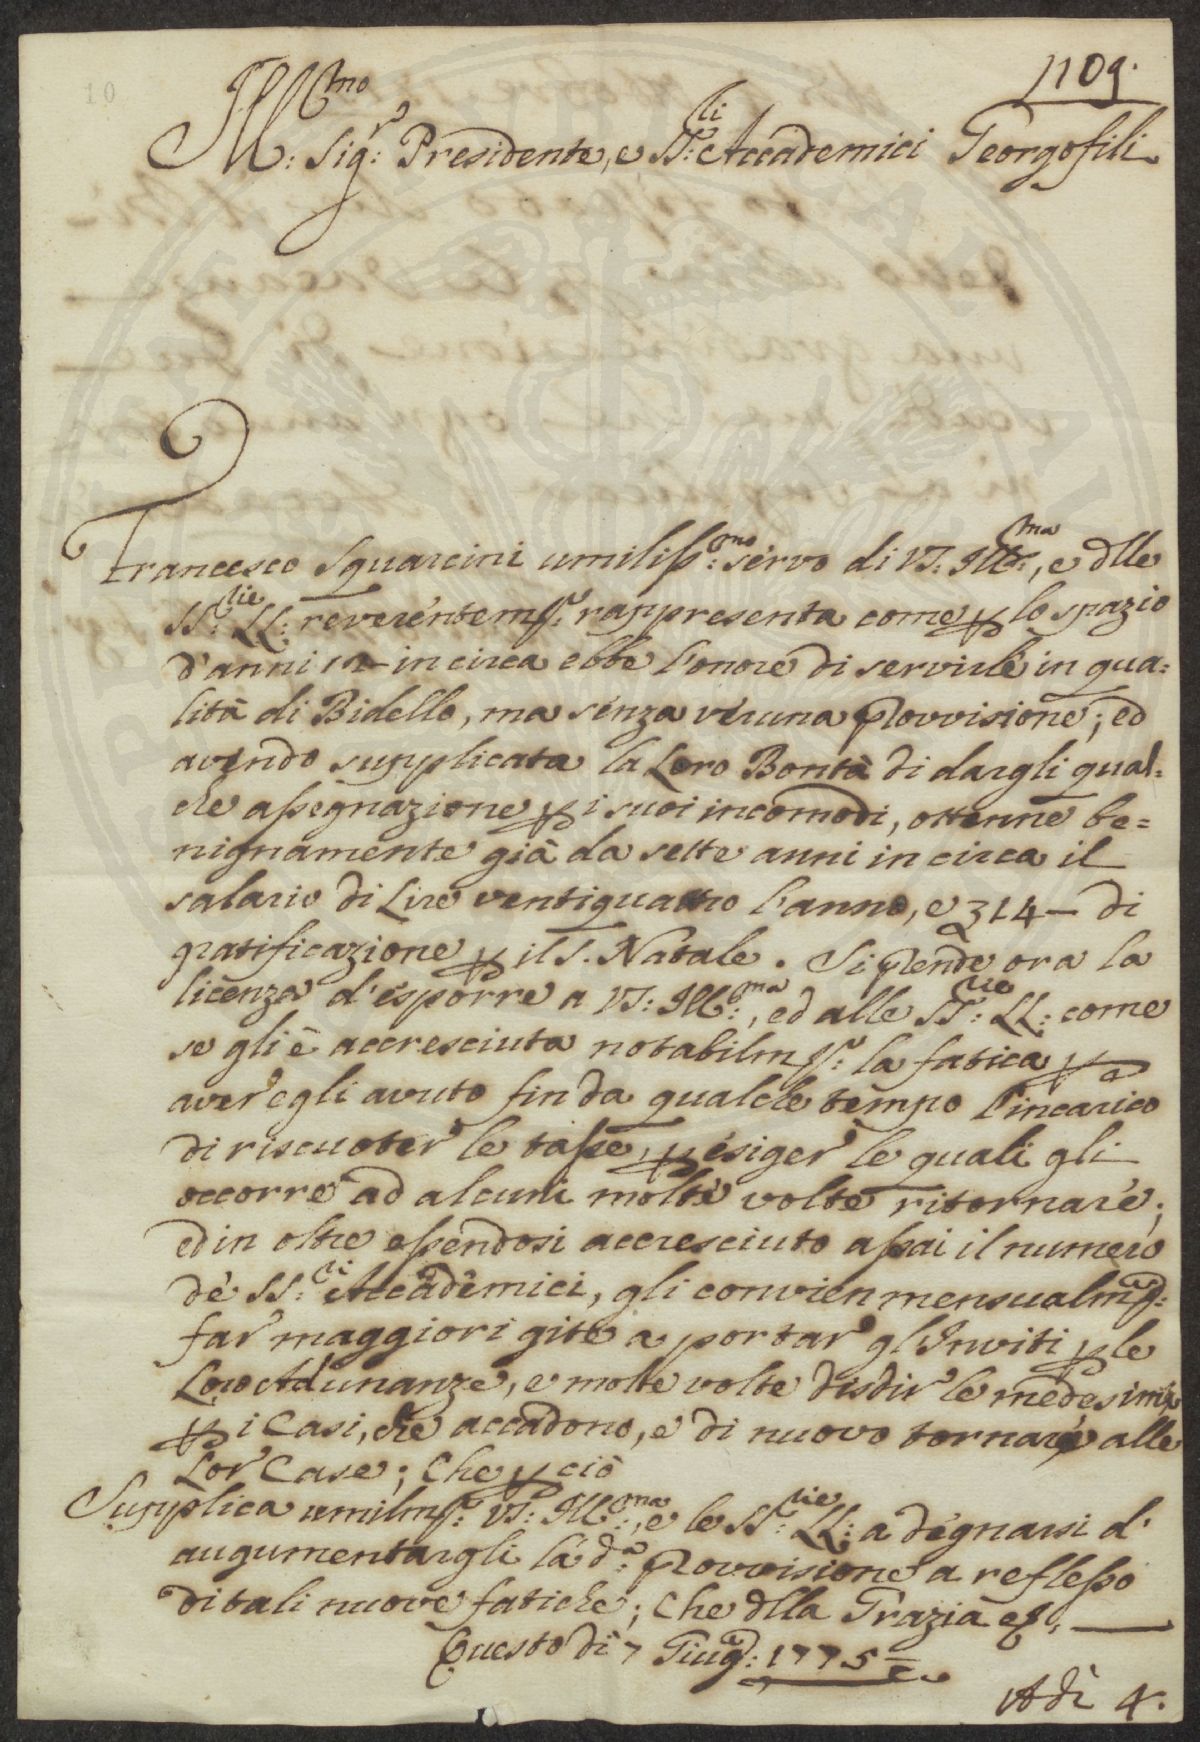 10
1109.
Ill:mo Sig:r Presidente, e SS:ri Accademici Georgofili
Francesco Squarcini umiliss:mo servo di VS: Ill:ma, e dlle
SS:rie LL: reverentem: rappresenta come p lo spazio
d'anni in circa ebbe l'onore di servirle in qua=
lità di Bidello, ma senza veruna provvisione; ed
avendo supplicata la Loro Bontà di dargli qual=
che assegnazione p i suoi incomodi, ottenne be=
nignamente già da sette anni in circa il
salario di Lire ventiquattro l'anno, e 4 — di
gratificazione p il S. Natale. Si prende ora la
licenza d'esporre a VS: Ill:ma, ed alle SS:rie LL: come
se gli è accresciuta notabilm: la fatica p
aver egli avuto fin da qualche tempo l'incarico
di riscuoter le tasse, p esiger le quali gli
occorre ad alcuni molte volte ritornare;
ed in oltre essendosi accresciuto assai il numero
de' SS:ri Accademici, gli convien mensualm:e
far maggiori gite a portar gl'Inviti p le
Loro Adunanze, e molte volte disdir le medesime
p i Casi, che accadono, e di nuovo tornare alle
Lor Case; Che p ciò
Supplica umilm: VS: Ill:ma, e le SS:rie LL: a degnarsi d'
augumentargli la d:a provvisione a reflesso
di tali nuove fatiche; Che dlla Grazia
Questo dì 7 Giug: 1775
Adì 4.